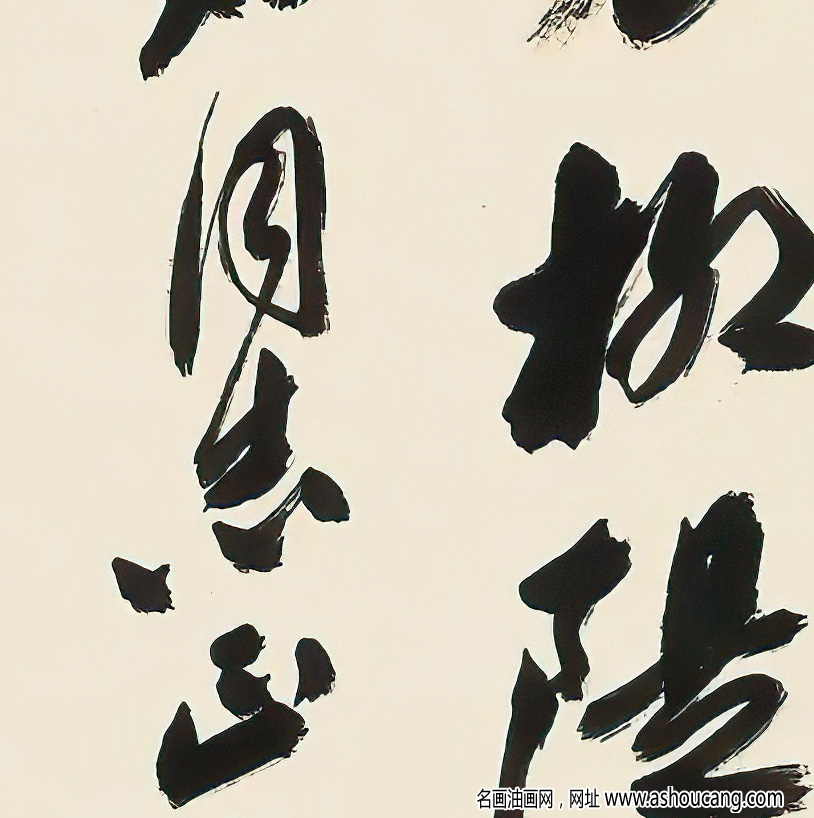 柳陽
同志正
名画油画网，网址 www.ashoucang.com